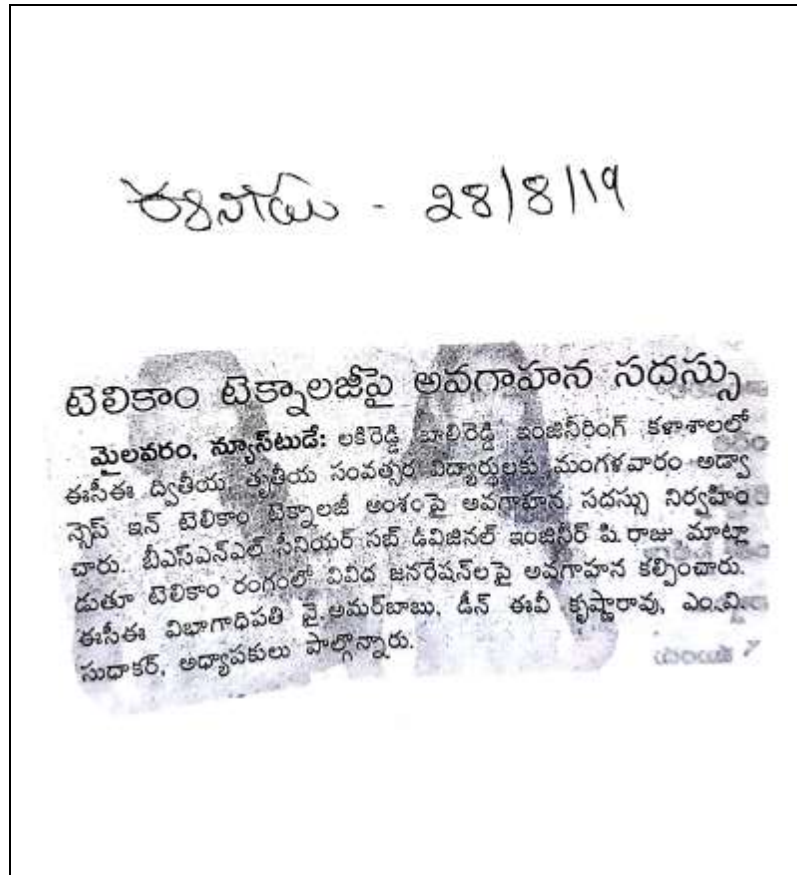 ఈనాడు - 28/8/19
టెలికాం టెక్నాలజీపై అవగాహన సదస్సు
మైలవరం, న్యూస్‌టుడే: లకిరెడ్డి బాలిరెడ్డి ఇంజినీరింగ్ కళాశాలలో
ఈసీఈ ద్వితీయ, తృతీయ సంవత్సర విద్యార్థులకు మంగళవారం అడ్వా
న్సెస్ ఇన్ టెలికాం టెక్నాలజీ అంశంపై అవగాహన సదస్సు నిర్వహిం
చారు. బీఎస్ఎన్ఎల్ సీనియర్ సబ్ డివిజినల్ ఇంజినీర్ పి.రాజు మాట్లా
డుతూ టెలికాం రంగంలో వివిద జనరేషన్‌లపై అవగాహన కల్పించారు.
ఈసీఈ విభాగాధిపతి వై.అమర్‌బాబు, డీన్ ఈవీ కృష్ణారావు, ఎం.వి.
సుధాకర్, అధ్యాపకులు పాల్గొన్నారు.